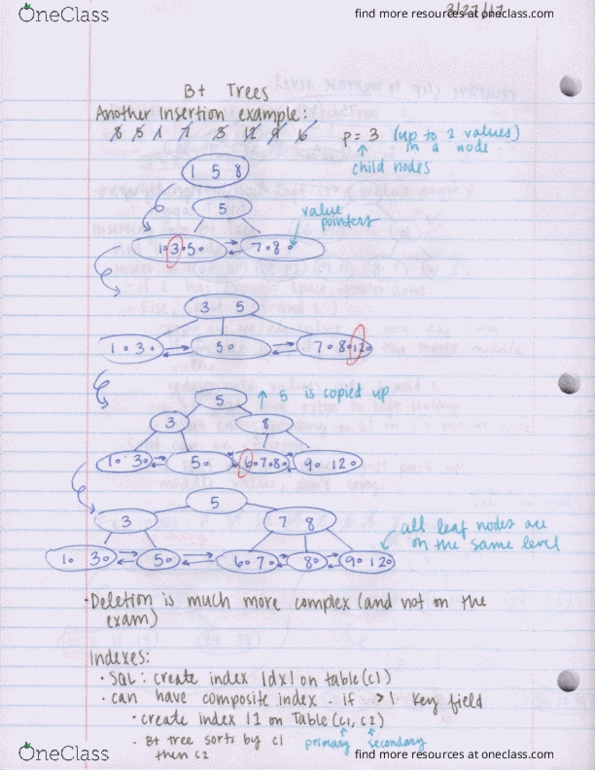 OneClass
find more resources at oneclass.com
3/27/17
B+ Trees
Another Insertion example:
8 5 1 7 3 12 9 6
p = 3 (up to 2 values) in a node
child nodes
1 5 8
5
value pointers
1 3 5 7 8
3 5
1 3 5 7 8 12
5
5 is copied up
3 8
1 3 5 6 7 8 9 12
5
3 7 8
1 3 5 6 7 8 9 12
all leaf nodes are
on the same level
· Deletion is much more complex (and not on the
exam)
Indexes:
· SQL: create index Idx1 on table(c1)
· can have composite index - if >1 key field
· create index I1 on Table (c1, c2)
· B+ tree sorts by c1
then c2
primary secondary
OneClass
find more resources at oneclass.com